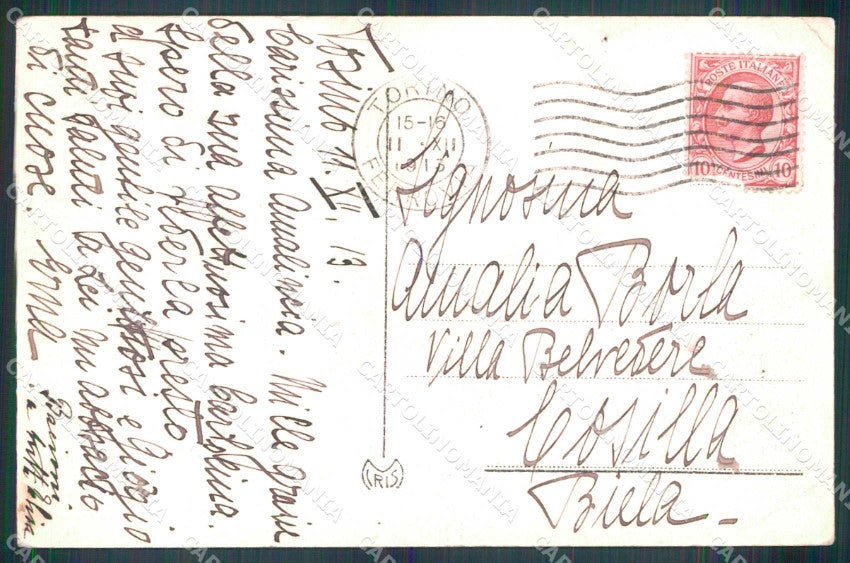 Torino 11.XII.13.
Carissima Amalincia. Mille grazie
della sua affettuosissima cartolina.
Spero di presto
ai suoi gentili genitori e Giorgio
tanti saluti la Lei un abbraccio
di cuore. Erna
Bacioni
a tutti
TORINO
15-16
11 .XII
1913
FERROVIA
POSTE ITALIANE
10 CENTESIMI 10
Signorina
Amalia Borla
Villa Belvedere
Cosilla
Biela -
CRIS
CARTOLINOMANIA